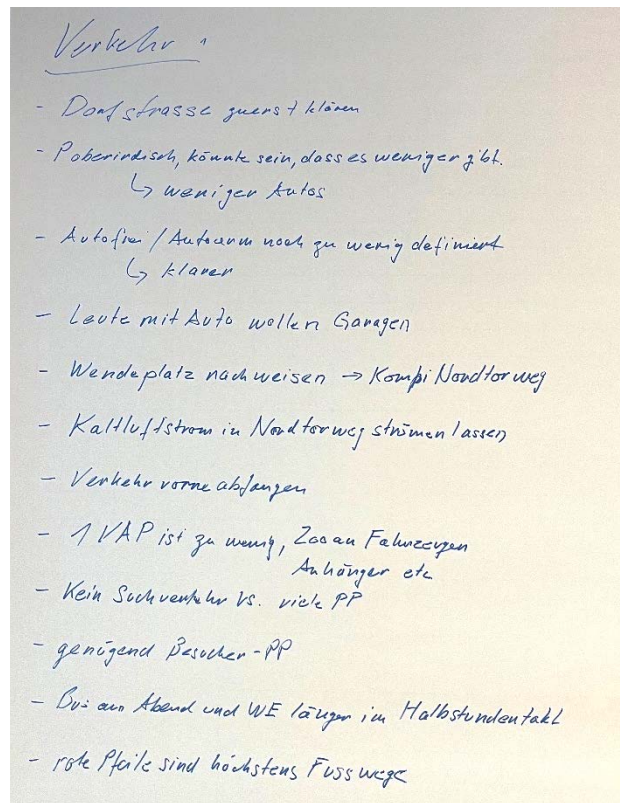 Verkehr :
- Dorfstrasse zuerst klären
- P oberirdisch, könnte sein, dass es weniger gibt.
↳ weniger Autos
- Autofrei / Autoarm noch zu wenig definiert
↳ klarer
- Leute mit Auto wollen Garagen
- Wendeplatz nachweisen → Kombi Nordtorweg
- Kaltluftstrom in Nordtorweg strömen lassen
- Verkehr vorne abfangen
- 1 VAP ist zu wenig, Zoo an Fahrzeugen
Anhänger etc
- Kein Suchverkehr vs. viele PP
- genügend Besucher-PP
- Bus am Abend und WE länger im Halbstundentakt
- rote Pfeile sind höchstens Fusswege